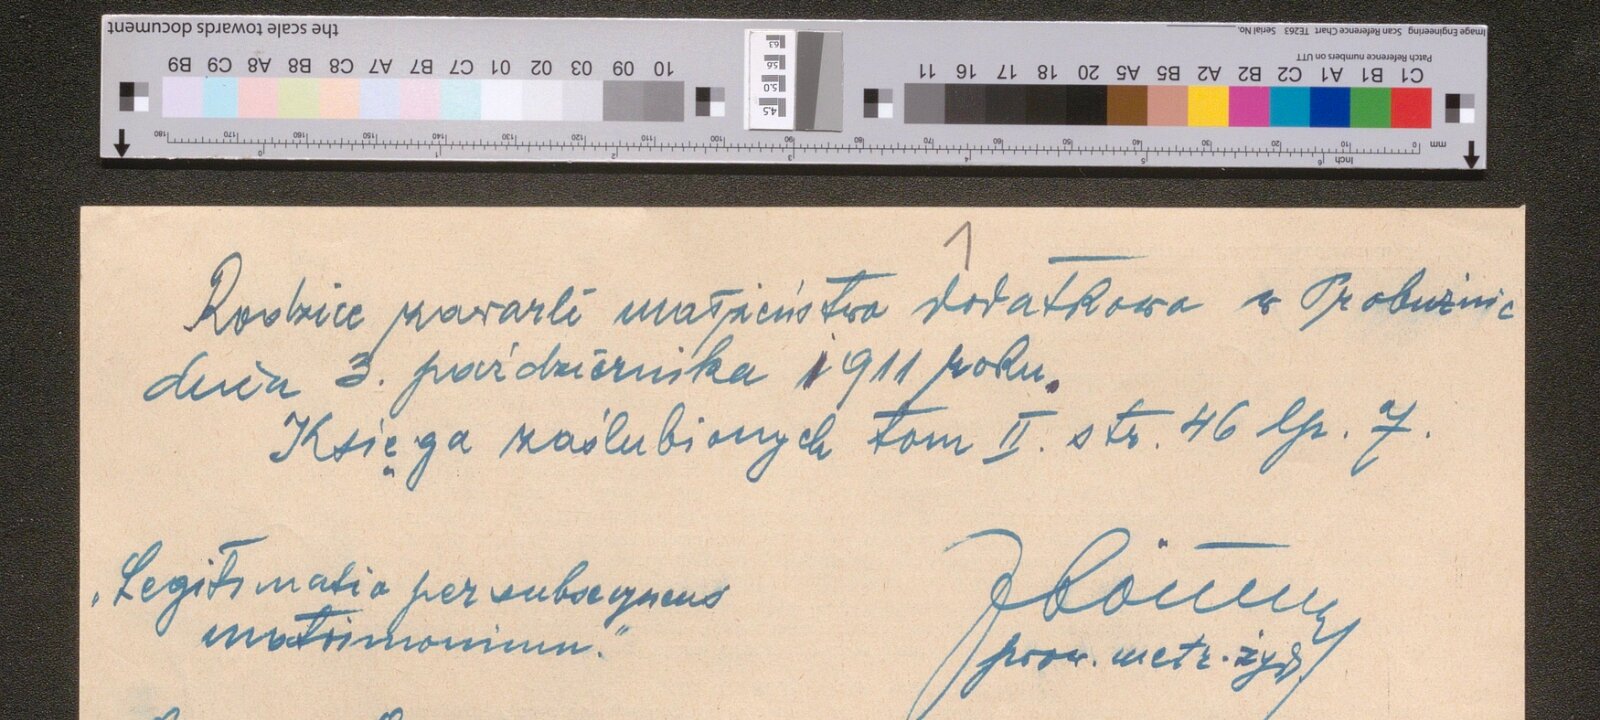 the scale towards document
Image Engineering Scan Reference Chart TE263 Serial No.
Patch Reference numbers on UTT
B9 C9 A8 B8 C8 A7 B7 C7 01 02 03 09 10
11 16 17 18 20 A5 B5 A2 B2 C2 A1 B1 C1
63
5.6
5.0
4.5
180 170 160 150 140 130 120 110 100 90 80 70 60 50 40 30 20 10 0 mm
0 1 2 3 4 5 6 Inch
1
Rodzice zawarli małżeństwo dodatkowo w Probużnie
dnia 3. października 1911 roku.
Księga zaślubionych tom II. str. 46 lp. 7.
„Legitimatio per subsequens
matrimonium."
prow. metr. żyd.